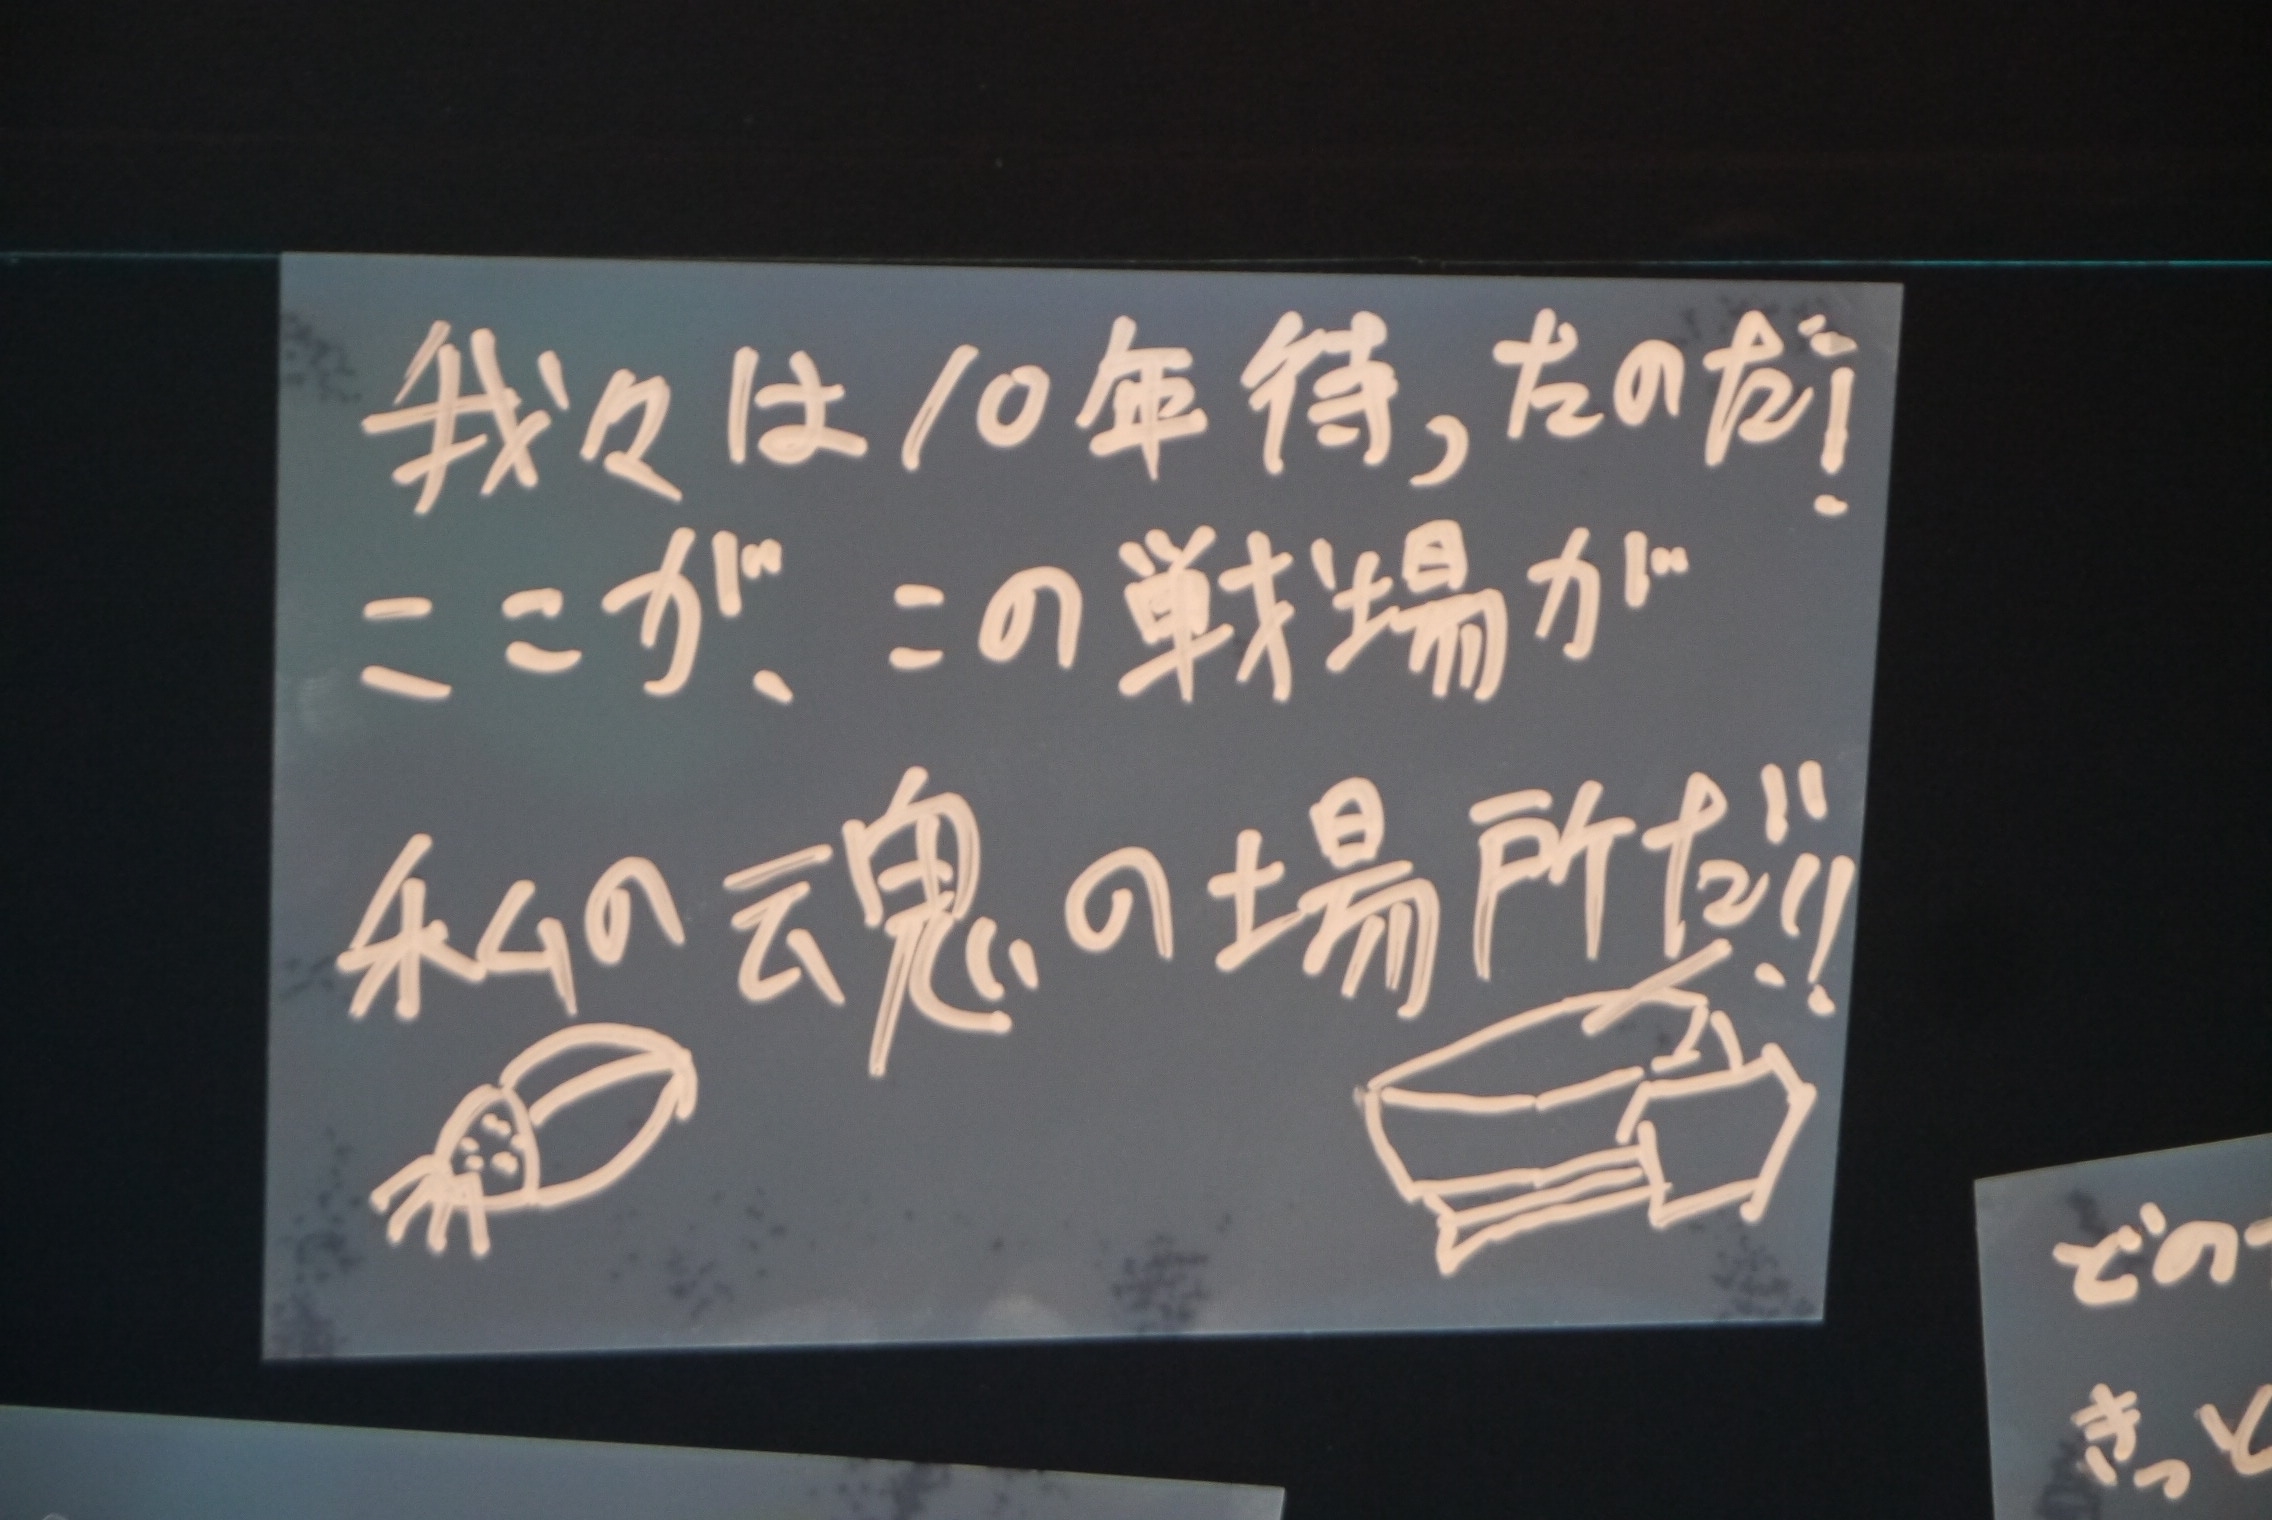 我々は10年待ったのだ!
ここが、この戦場が
私の魂の場所だ!!
どの
きっと